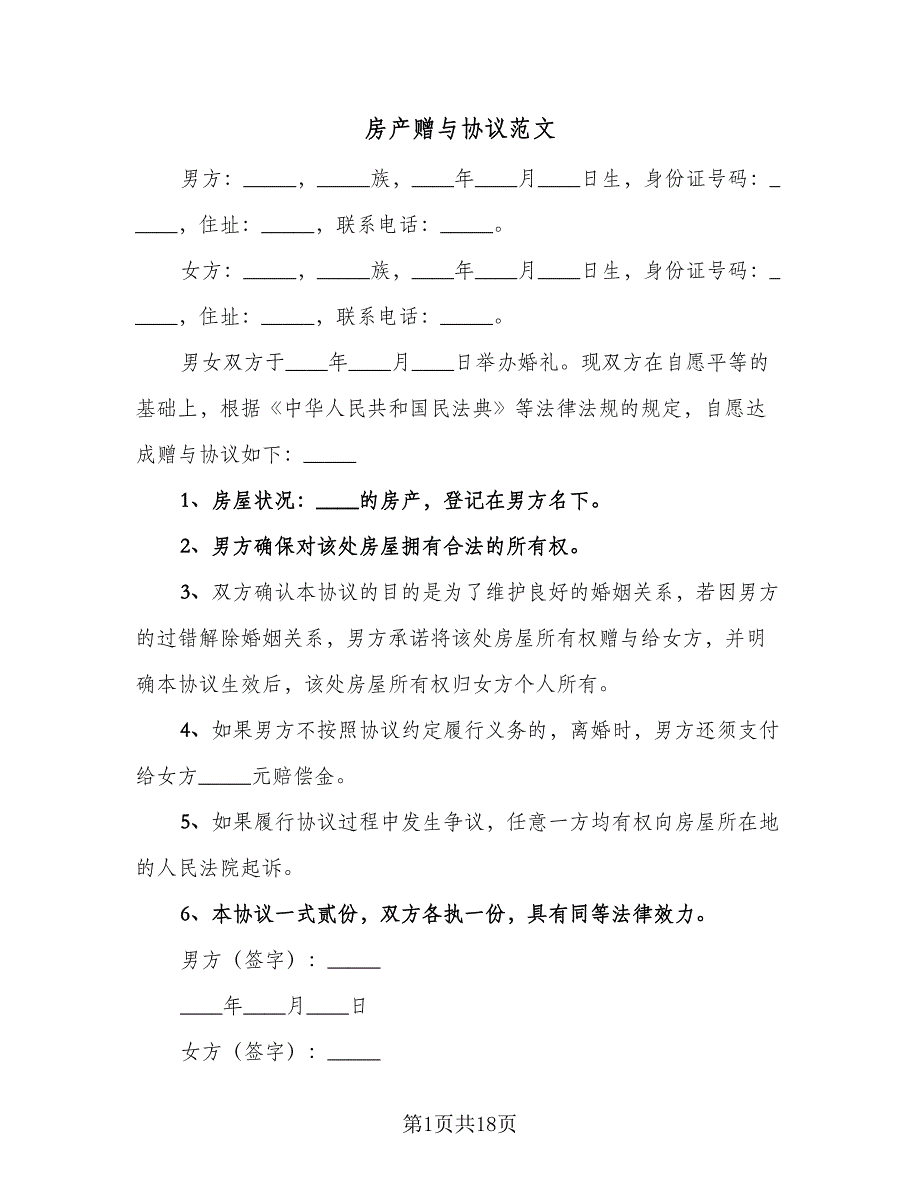 房产赠与协议范文
男方：_____，_____族，____年____月____日生，身份证号码：_
____，住址：_____，联系电话：_____。
女方：_____，_____族，____年____月____日生，身份证号码：_
____，住址：_____，联系电话：_____。
男女双方于____年____月____日举办婚礼。现双方在自愿平等的
基础上，根据《中华人民共和国民法典》等法律法规的规定，自愿达
成赠与协议如下：_____
1、房屋状况：____的房产，登记在男方名下。
2、男方确保对该处房屋拥有合法的所有权。
3、双方确认本协议的目的是为了维护良好的婚姻关系，若因男方
的过错解除婚姻关系，男方承诺将该处房屋所有权赠与给女方，并明
确本协议生效后，该处房屋所有权归女方个人所有。
4、如果男方不按照协议约定履行义务的，离婚时，男方还须支付
给女方_____元赔偿金。
5、如果履行协议过程中发生争议，任意一方均有权向房屋所在地
的人民法院起诉。
6、本协议一式贰份，双方各执一份，具有同等法律效力。
男方（签字）：_____
____年____月____日
女方（签字）：_____
第1页共18页